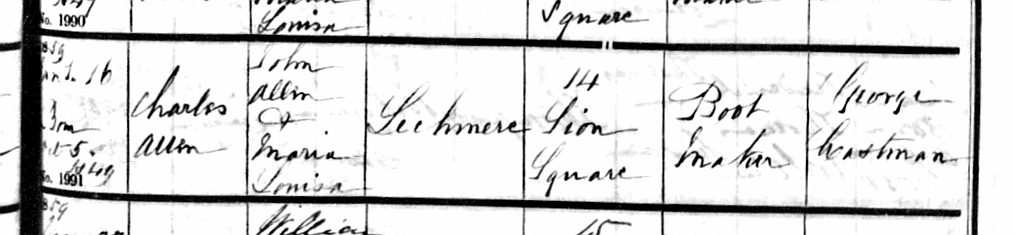 No. 1990
Louisa
Square
1859
Jant. 16
Born
Oct 5.
1849
No. 1991
Charles
Allen
John
Allen
&
Maria
Louisa
Lechmere
14
Lion
Square
Boot
Maker
George
Eastman
William
15